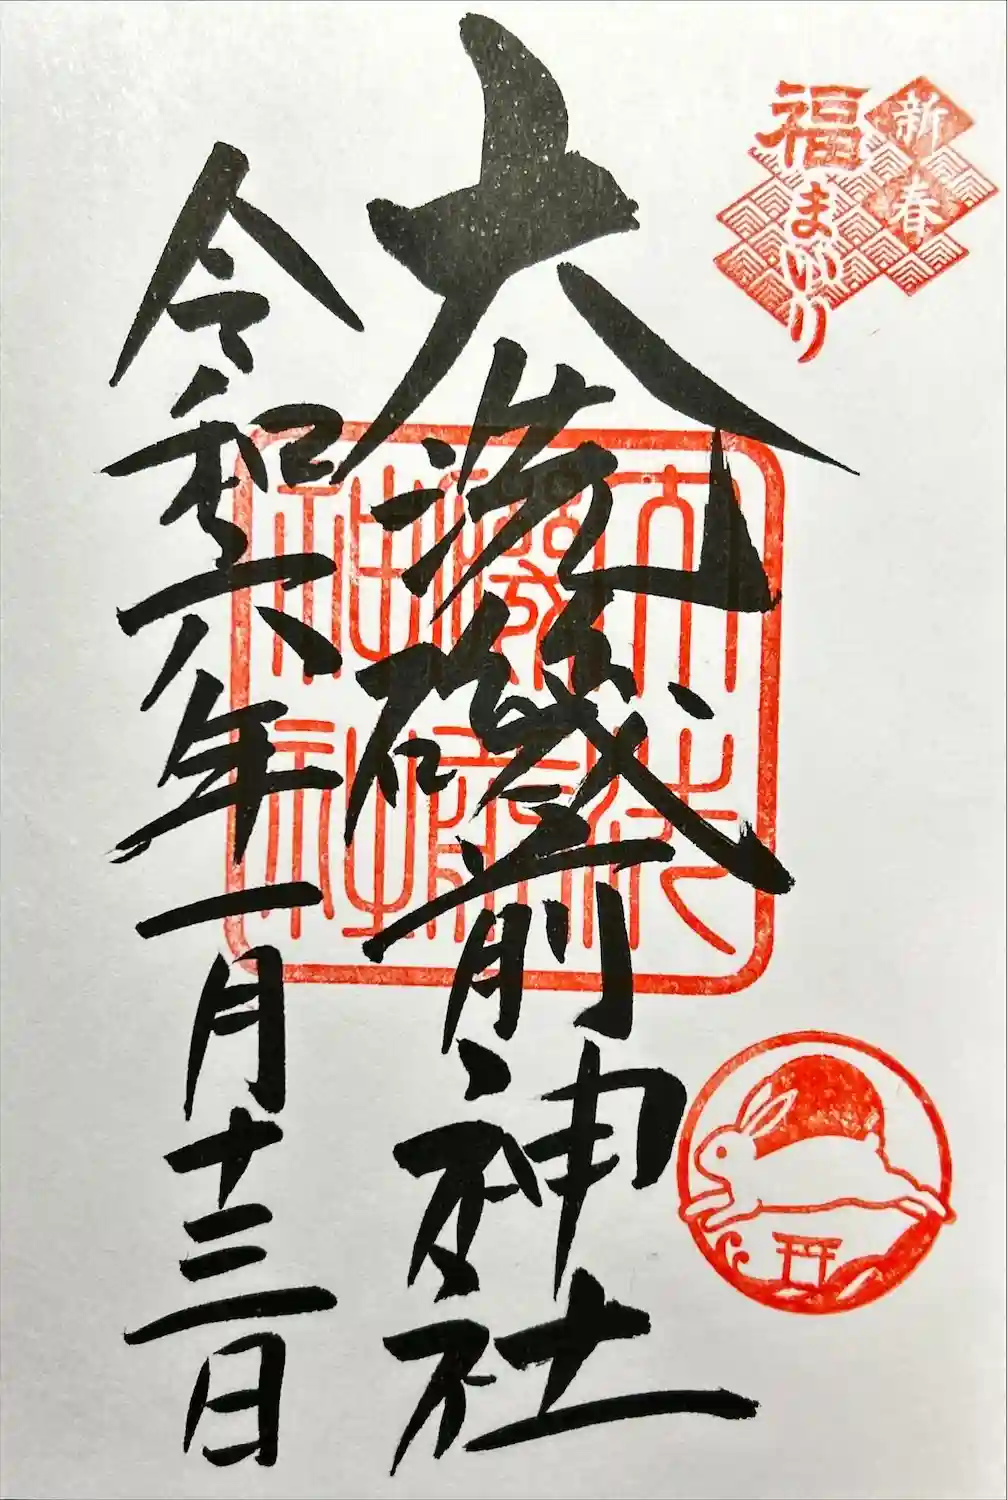 新春
福まゐり
大洗磯前神社
大洗
磯前
神社
令和六年一月十三日